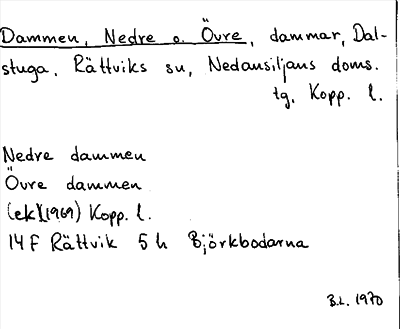 Dammen, Nedre o. Övre, dammar, Dal-
stuga, Rättviks sn, Nedansiljans doms.
tg, Kopp. l.
Nedre dammen
Övre dammen
(ek)(1969) Kopp. l.
14 F Rättvik 5 h Björkbodarna
B.L. 1970